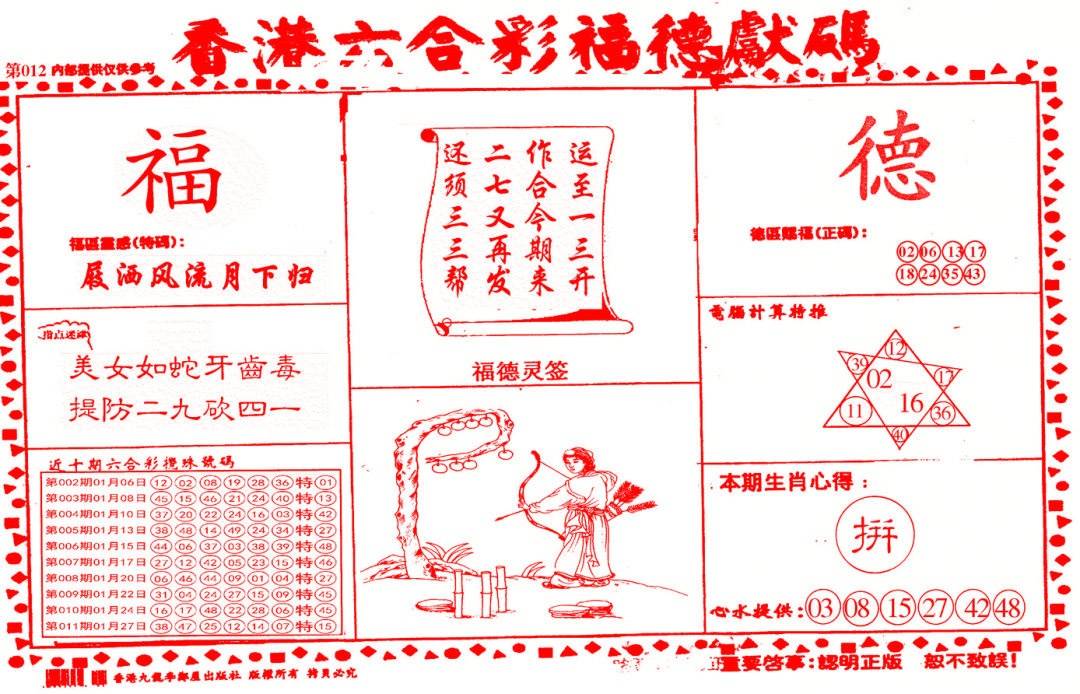 香港六合彩福德獻碼
第012 内部提供仅供参考
福
福區靈感(特碼):
屐洒风流月下归
指点迷津
美女如蛇牙齒毒
提防二九砍四一
近十期六合彩攪珠號碼
第002期01月06日 12 02 08 19 28 36 特 01
第003期01月08日 45 15 46 21 24 40 特 13
第004期01月10日 37 20 22 24 16 03 特 42
第005期01月13日 38 48 14 49 24 34 特 27
第006期01月15日 44 06 37 03 38 39 特 48
第007期01月17日 27 12 42 05 23 15 特 46
第008期01月20日 06 46 44 09 01 04 特 27
第009期01月22日 31 04 24 27 15 09 特 45
第010期01月24日 16 17 48 22 28 06 特 45
第011期01月27日 38 47 25 12 14 07 特 15
运至一三开
作合今期来
二七又再发
还须三三帮
福德灵签
德
德區賜福(正碼):
02 06 13 17
18 24 35 43
電腦計算特推
12
39 02 17
11 16 36
40
本期生肖心得:
拼
心水提供: 03 08 15 27 42 48
重要啓事:認明正版 恕不致誤!
香港九龍李鄭屋出版社 版權所有 拷貝必究